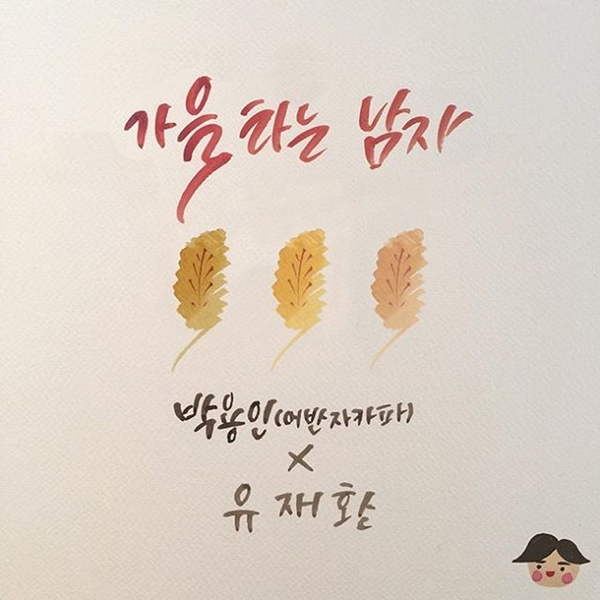 가을 타는 남자
박용인(어반자카파)
×
유재환